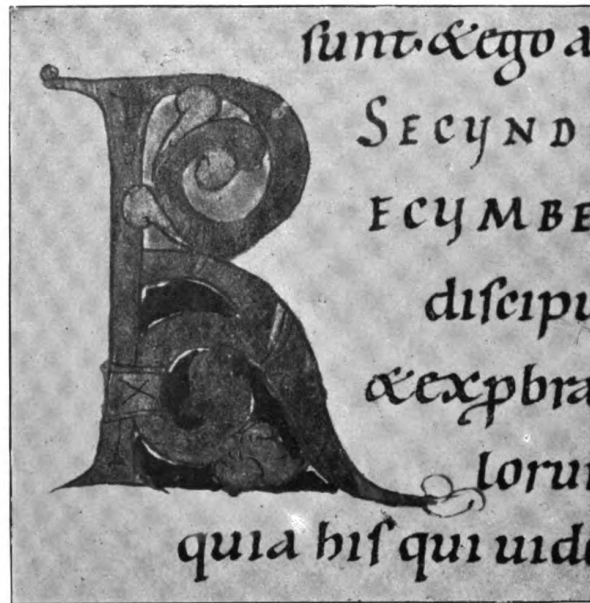 sunt. & ego a
SECUND
R
ECUMBE
discipu
& exprbra
lorum
quia his qui uide